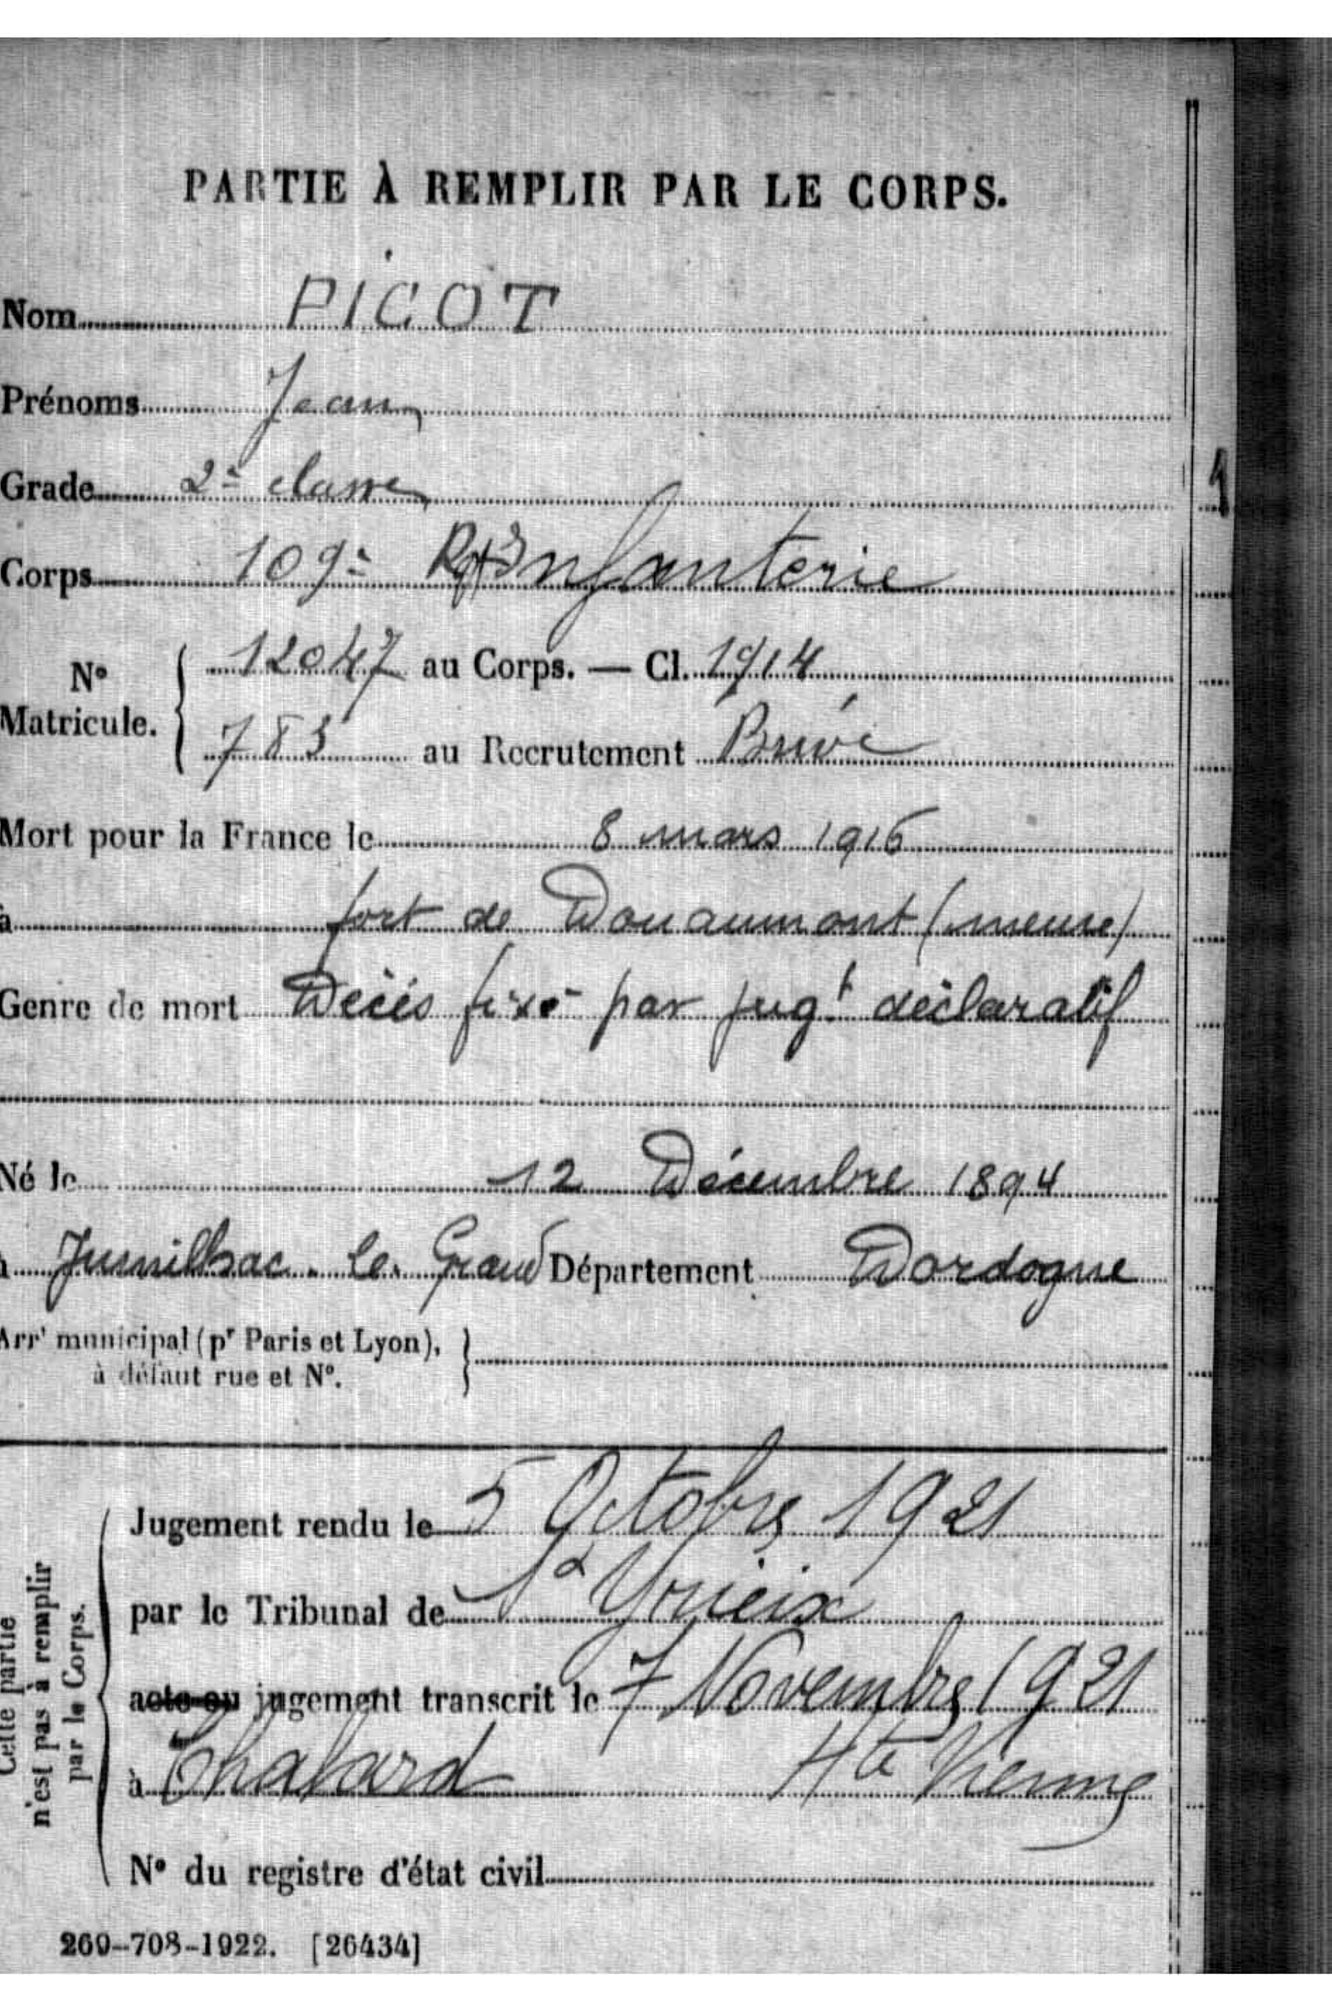 PARTIE À REMPLIR PAR LE CORPS.
Nom PICOT
Prénoms Jean
Grade 2e classe
Corps 109e Rgt Infanterie
No Matricule. 12047 au Corps. — Cl. 1914
783 au Recrutement Brive
Mort pour la France le 8 mars 1916
à fort de Douaumont (meuse)
Genre de mort Décès fixé par jugt déclaratif
Né le 12 Décembre 1894
à Jumilhac. le. Grand Département Dordogne
Arrt municipal (pr Paris et Lyon),
à défaut rue et No.
Cette partie
n'est pas à remplir
par le Corps.
Jugement rendu le 5 Octobre 1921
par le Tribunal de St Yrieix
acte ou jugement transcrit le 7 Novembre 1921
à Chalard Hte Vienne
No du registre d'état civil
269-708-1922. [26434]